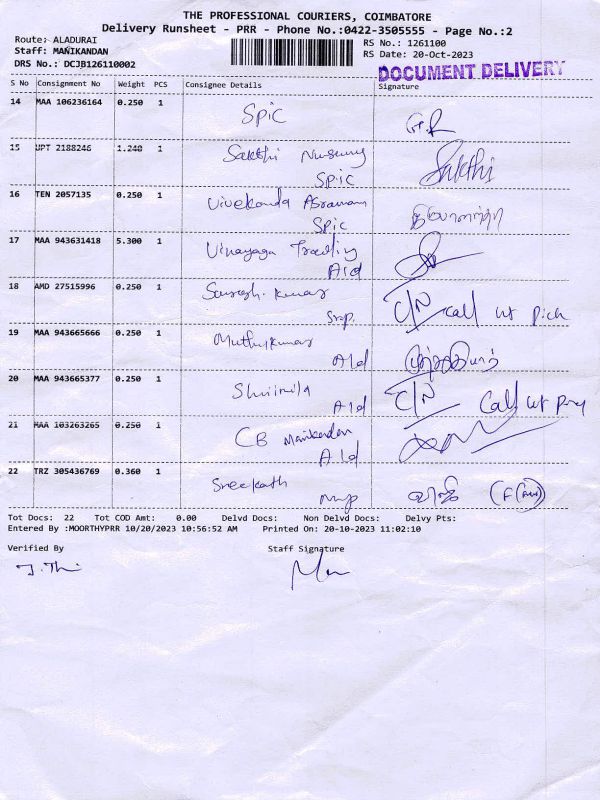 THE PROFESSIONAL COURIERS, COIMBATORE
Delivery Runsheet - PRR - Phone No.:0422-3505555 - Page No.:2
Route: ALADURAI
RS No.: 1261100
Staff: MANIKANDAN
RS Date: 20-Oct-2023
DRS No.: DCJB126110002
DOCUMENT DELIVERY
S No Consignment No Weight PCS Consignee Details Signature
14 MAA 106236164 0.250 1 Spic
15 UPT 2188246 1.240 1 Sakthi Nursery Sakthi
Spic
16 TEN 2057135 0.250 1 Vivekanda Asramam
Spic
17 MAA 943631418 5.300 1 Vinayaga Trading
Ald
18 AMD 27515996 0.250 1 Suresh Kumar C/N call
19 MAA 943665666 0.250 1 Muthukumar
Ald
20 MAA 943665377 0.250 1 C/N Call
Ald
21 MAA 103263265 0.250 1 CB Manikandan
Ald
22 TRZ 305436769 0.360 1 Sreekath
Tot Docs: 22 Tot COD Amt: 0.00 Delvd Docs: Non Delvd Docs: Delvy Pts:
Entered By :MOORTHYPRR 10/20/2023 10:56:52 AM Printed On: 20-10-2023 11:02:10
Verified By Staff Signature